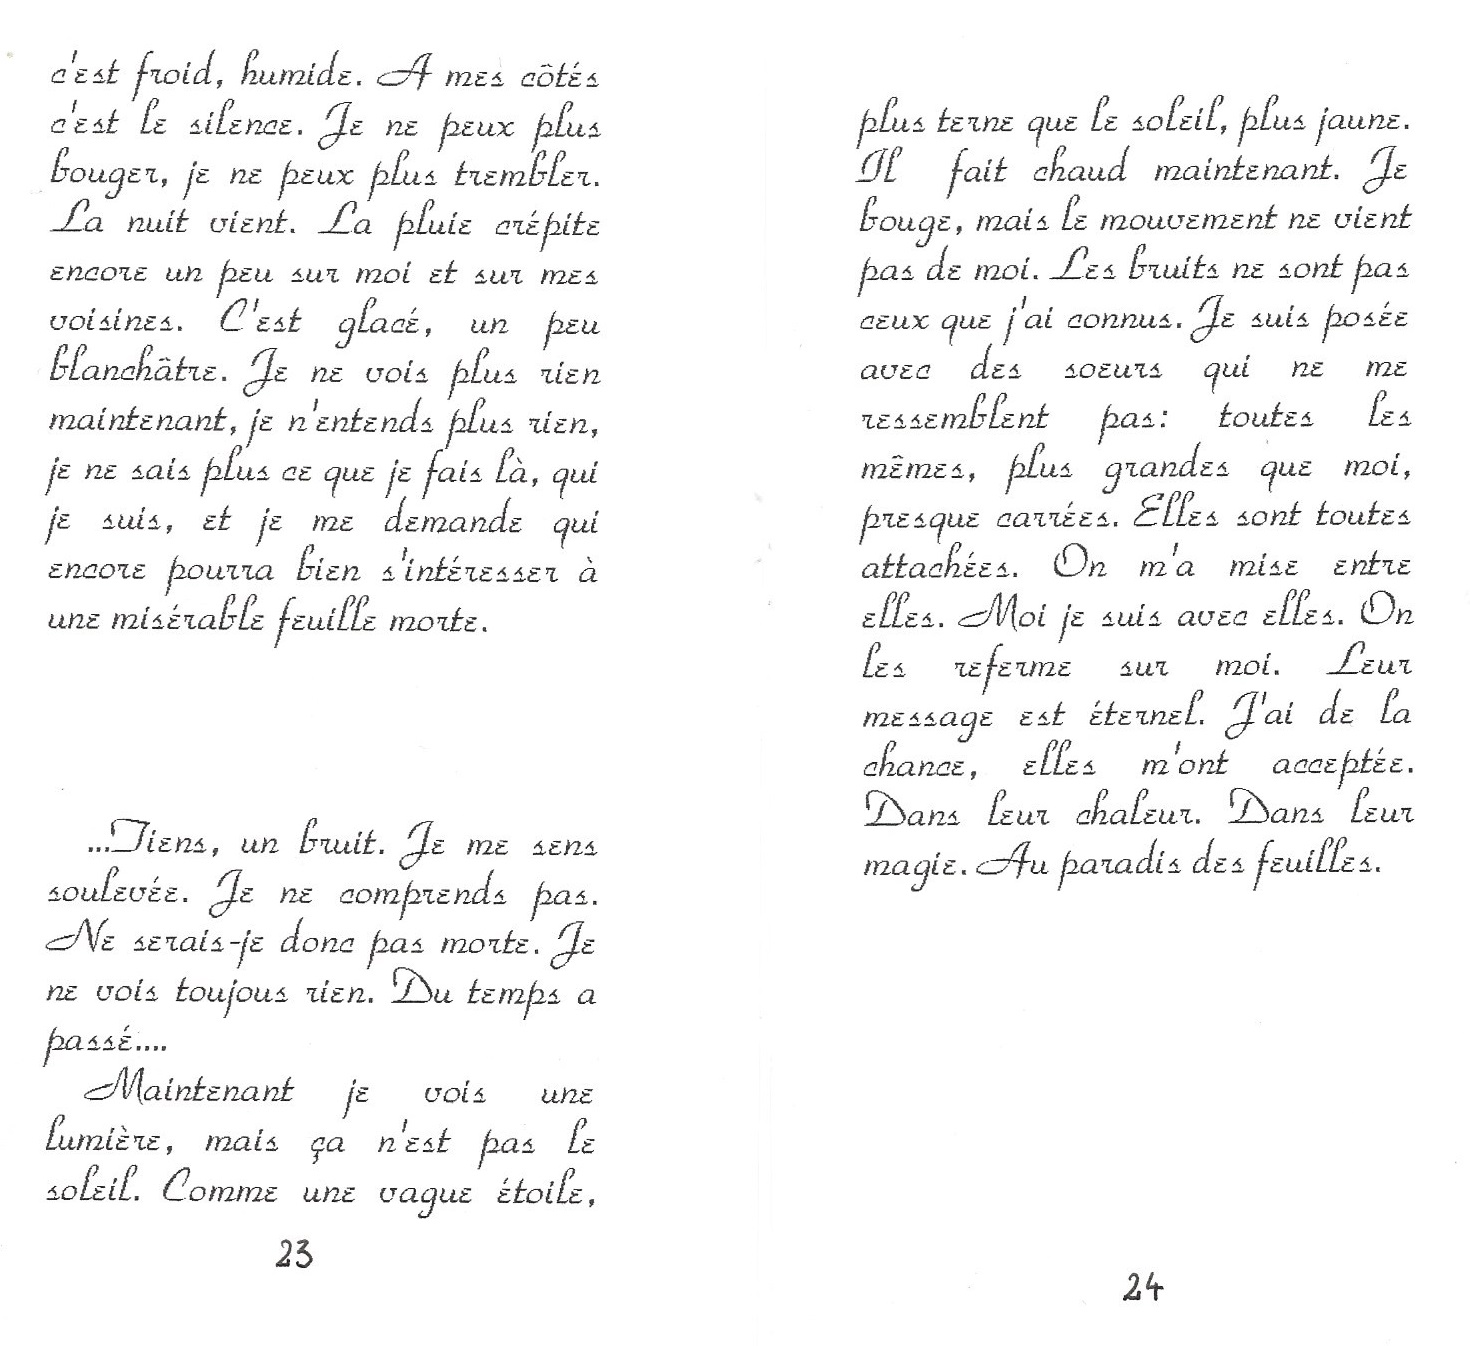 c'est froid, humide. A mes côtés
c'est le silence. Je ne peux plus
bouger, je ne peux plus trembler.
La nuit vient. La pluie crépite
encore un peu sur moi et sur mes
voisines. C'est glacé, un peu
blanchâtre. Je ne vois plus rien
maintenant, je n'entends plus rien,
je ne sais plus ce que je fais là, qui
je suis, et je me demande qui
encore pourra bien s'intéresser à
une misérable feuille morte.
...Tiens, un bruit. Je me sens
soulevée. Je ne comprends pas.
Ne serais-je donc pas morte. Je
ne vois toujous rien. Du temps a
passé....
Maintenant je vois une
lumière, mais ça n'est pas le
soleil. Comme une vague étoile,
23
plus terne que le soleil, plus jaune.
Il fait chaud maintenant. Je
bouge, mais le mouvement ne vient
pas de moi. Les bruits ne sont pas
ceux que j'ai connus. Je suis posée
avec des soeurs qui ne me
ressemblent pas: toutes les
mêmes, plus grandes que moi,
presque carrées. Elles sont toutes
attachées. On m'a mise entre
elles. Moi je suis avec elles. On
les referme sur moi. Leur
message est éternel. J'ai de la
chance, elles m'ont acceptée.
Dans leur chaleur. Dans leur
magie. Au paradis des feuilles.
24